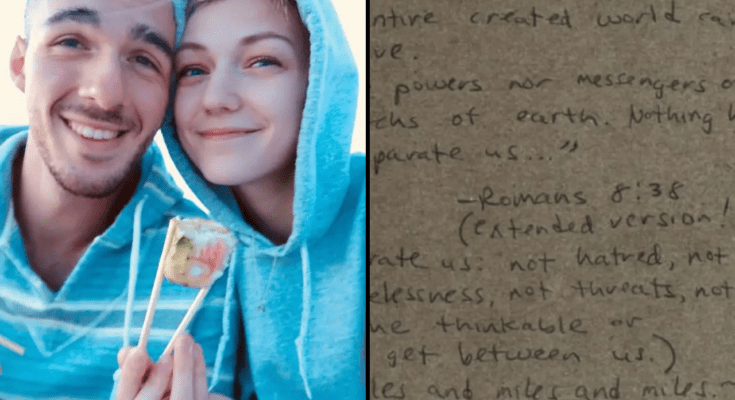 ntire created world can
ve.
powers nor messengers o
chs of earth. Nothing
parate us..."
-Romans 8:38
(extended version!
rate us: not hatred, not
elessness, not threats, not
he thinkable or
get between us.)
les and miles and miles.~